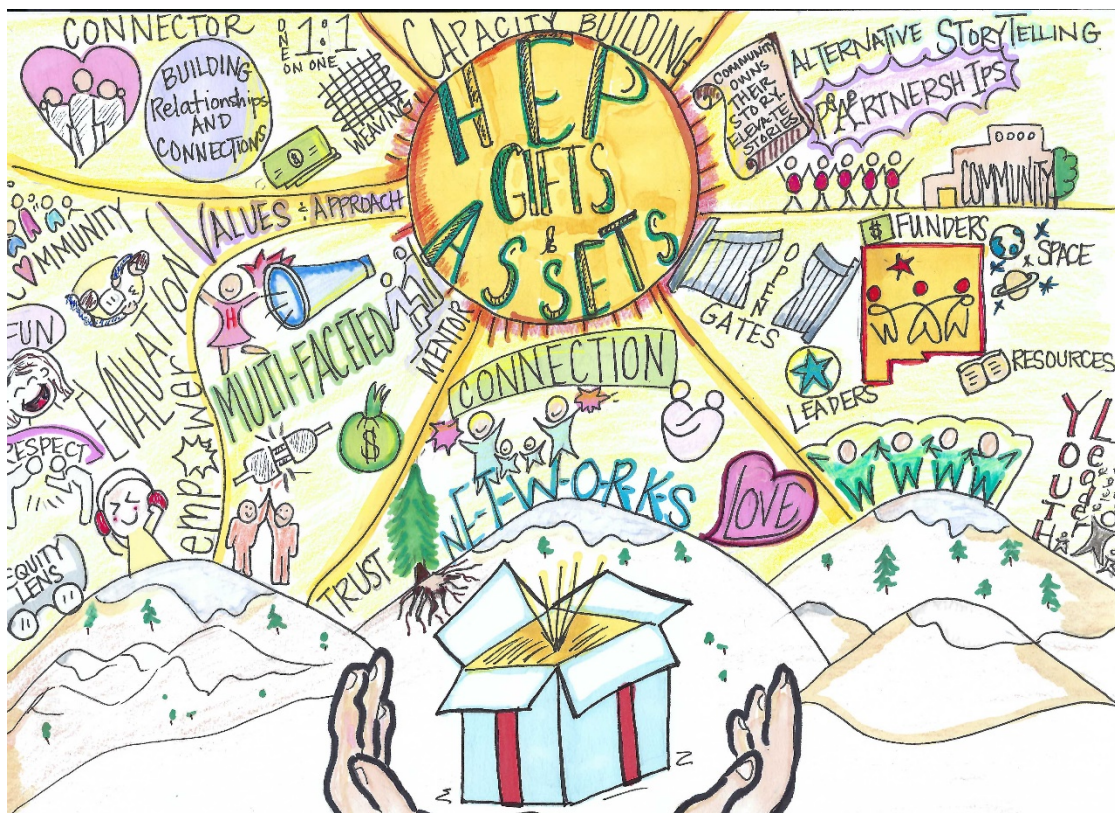 CONNECTOR
BUILDING
Relationships
AND
CONNECTIONS
ONE 1:1
ON ONE
WEAVING
$
CAPACITY BUILDING
HEP
GIFTS
&
ASSETS
COMMUNITY
OWNS
THEIR
STORY
ELEVATE
STORIES
ALTERNATIVE STORYTELLING
PARTNERSHIPS
COMMUNITY
VALUES & APPROACH
MMUNITY
FUN
EVALUATION
RESPECT
EQUITY
LENS
empower
H
MULTI-FACETED
MENTOR
$
TRUST
CONNECTION
N-E-T-W-O-R-K-S
LOVE
OPEN
GATES
$ FUNDERS
SPACE
RESOURCES
LEADERS
YOUTH